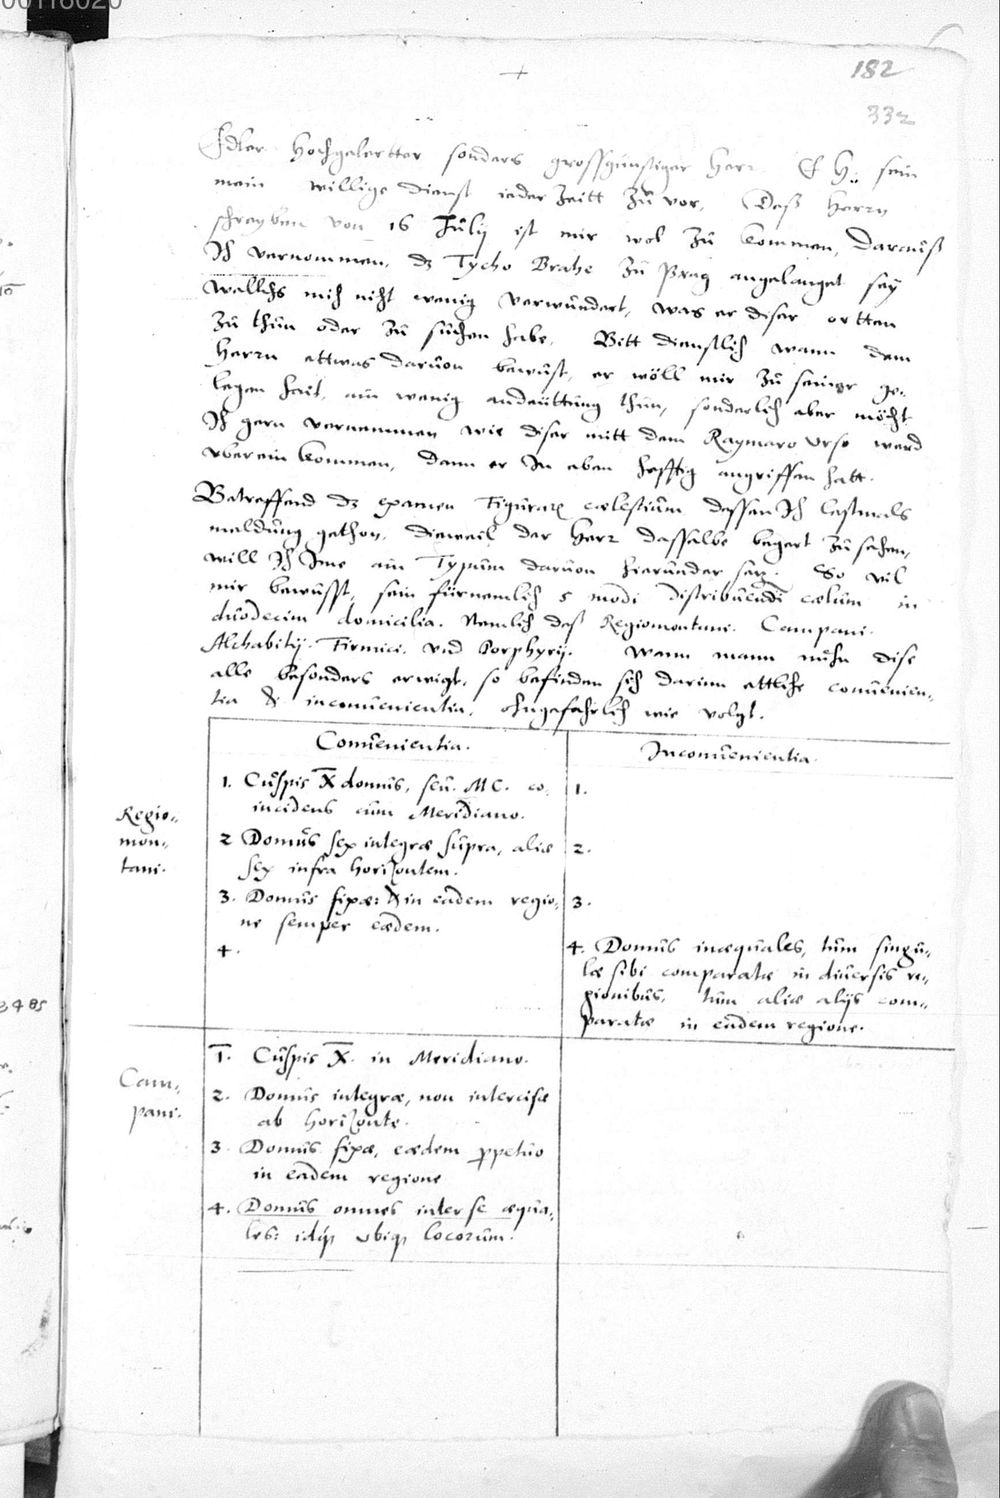 00116020
182
332
Edler Hochgelertter sonders grossgünstiger Herr. E H: sein
mein willige dienst ieder Zeitt Zu vor, Dass Herrn
schreyben von 16 Julij ist mir wol Zu kommen, darauss
Ich vernommen, dz Tycho Brahe Zu Prag angelanget sey
wellchs mich nicht wenig verwundert, was er diser ortten
Zu thun oder Zu suchen habe. Bitt dienstlich wann dem
Herrn ettwas daruon bewust, er wöll mir Zu seiner ge-
legen heit, ain wenig andeuttung thun, sonderlich aber möcht
Ich gern vernemmen wie diser mitt dem Raymaro Urso werd
überein kommen, dann er In eben hefftig angriffen hatt.
Betreffend dz examen Figurarum cælestium dessen Ich lestmals
meldung gethon, dieweil der Herr dasselbe begert Zu sehen,
will Ich Ime ain Typum daruon hierunder setz. So vil
mir bewusst, sein fürnemlich 5 modi distribuendi cælum in
duodecim domicilia. Nemlich dess Regiomontani. Campani.
Alchabitij. Firmici. vnd Porphyrij. Wann mann nuhn dise
alle besonders erwigt, so befinden sich darinn ettliche conuenien-
tia & inconuenientia, ohngefahrlich wie volgt.
Conuenientia.
Inconuenientia.
Regio-
mon-
tani.
1. Cuspis X domus, seu MC. co-
incidens cum Meridiano.
1.
2 Domus sex integræ supra, aliæ
sex infra horizontem.
2.
3. Domus fixæ: & in eadem regio-
ne semper eædem.
3.
4.
4. Domus inæquales, tum singu-
læ sibi comparatæ in diuersis re-
gionibus, tum aliæ alijs com-
paratæ in eadem regione.
3485
Cam-
pani.
1. Cuspis X. in Meridiano.
2. Domus integræ, non intercisæ
ab horizonte.
3. Domus fixæ, eædem ꝑpetuo
in eadem regione
4. Domus omnes inter se æqua-
les: idq; vbiq; locorum.